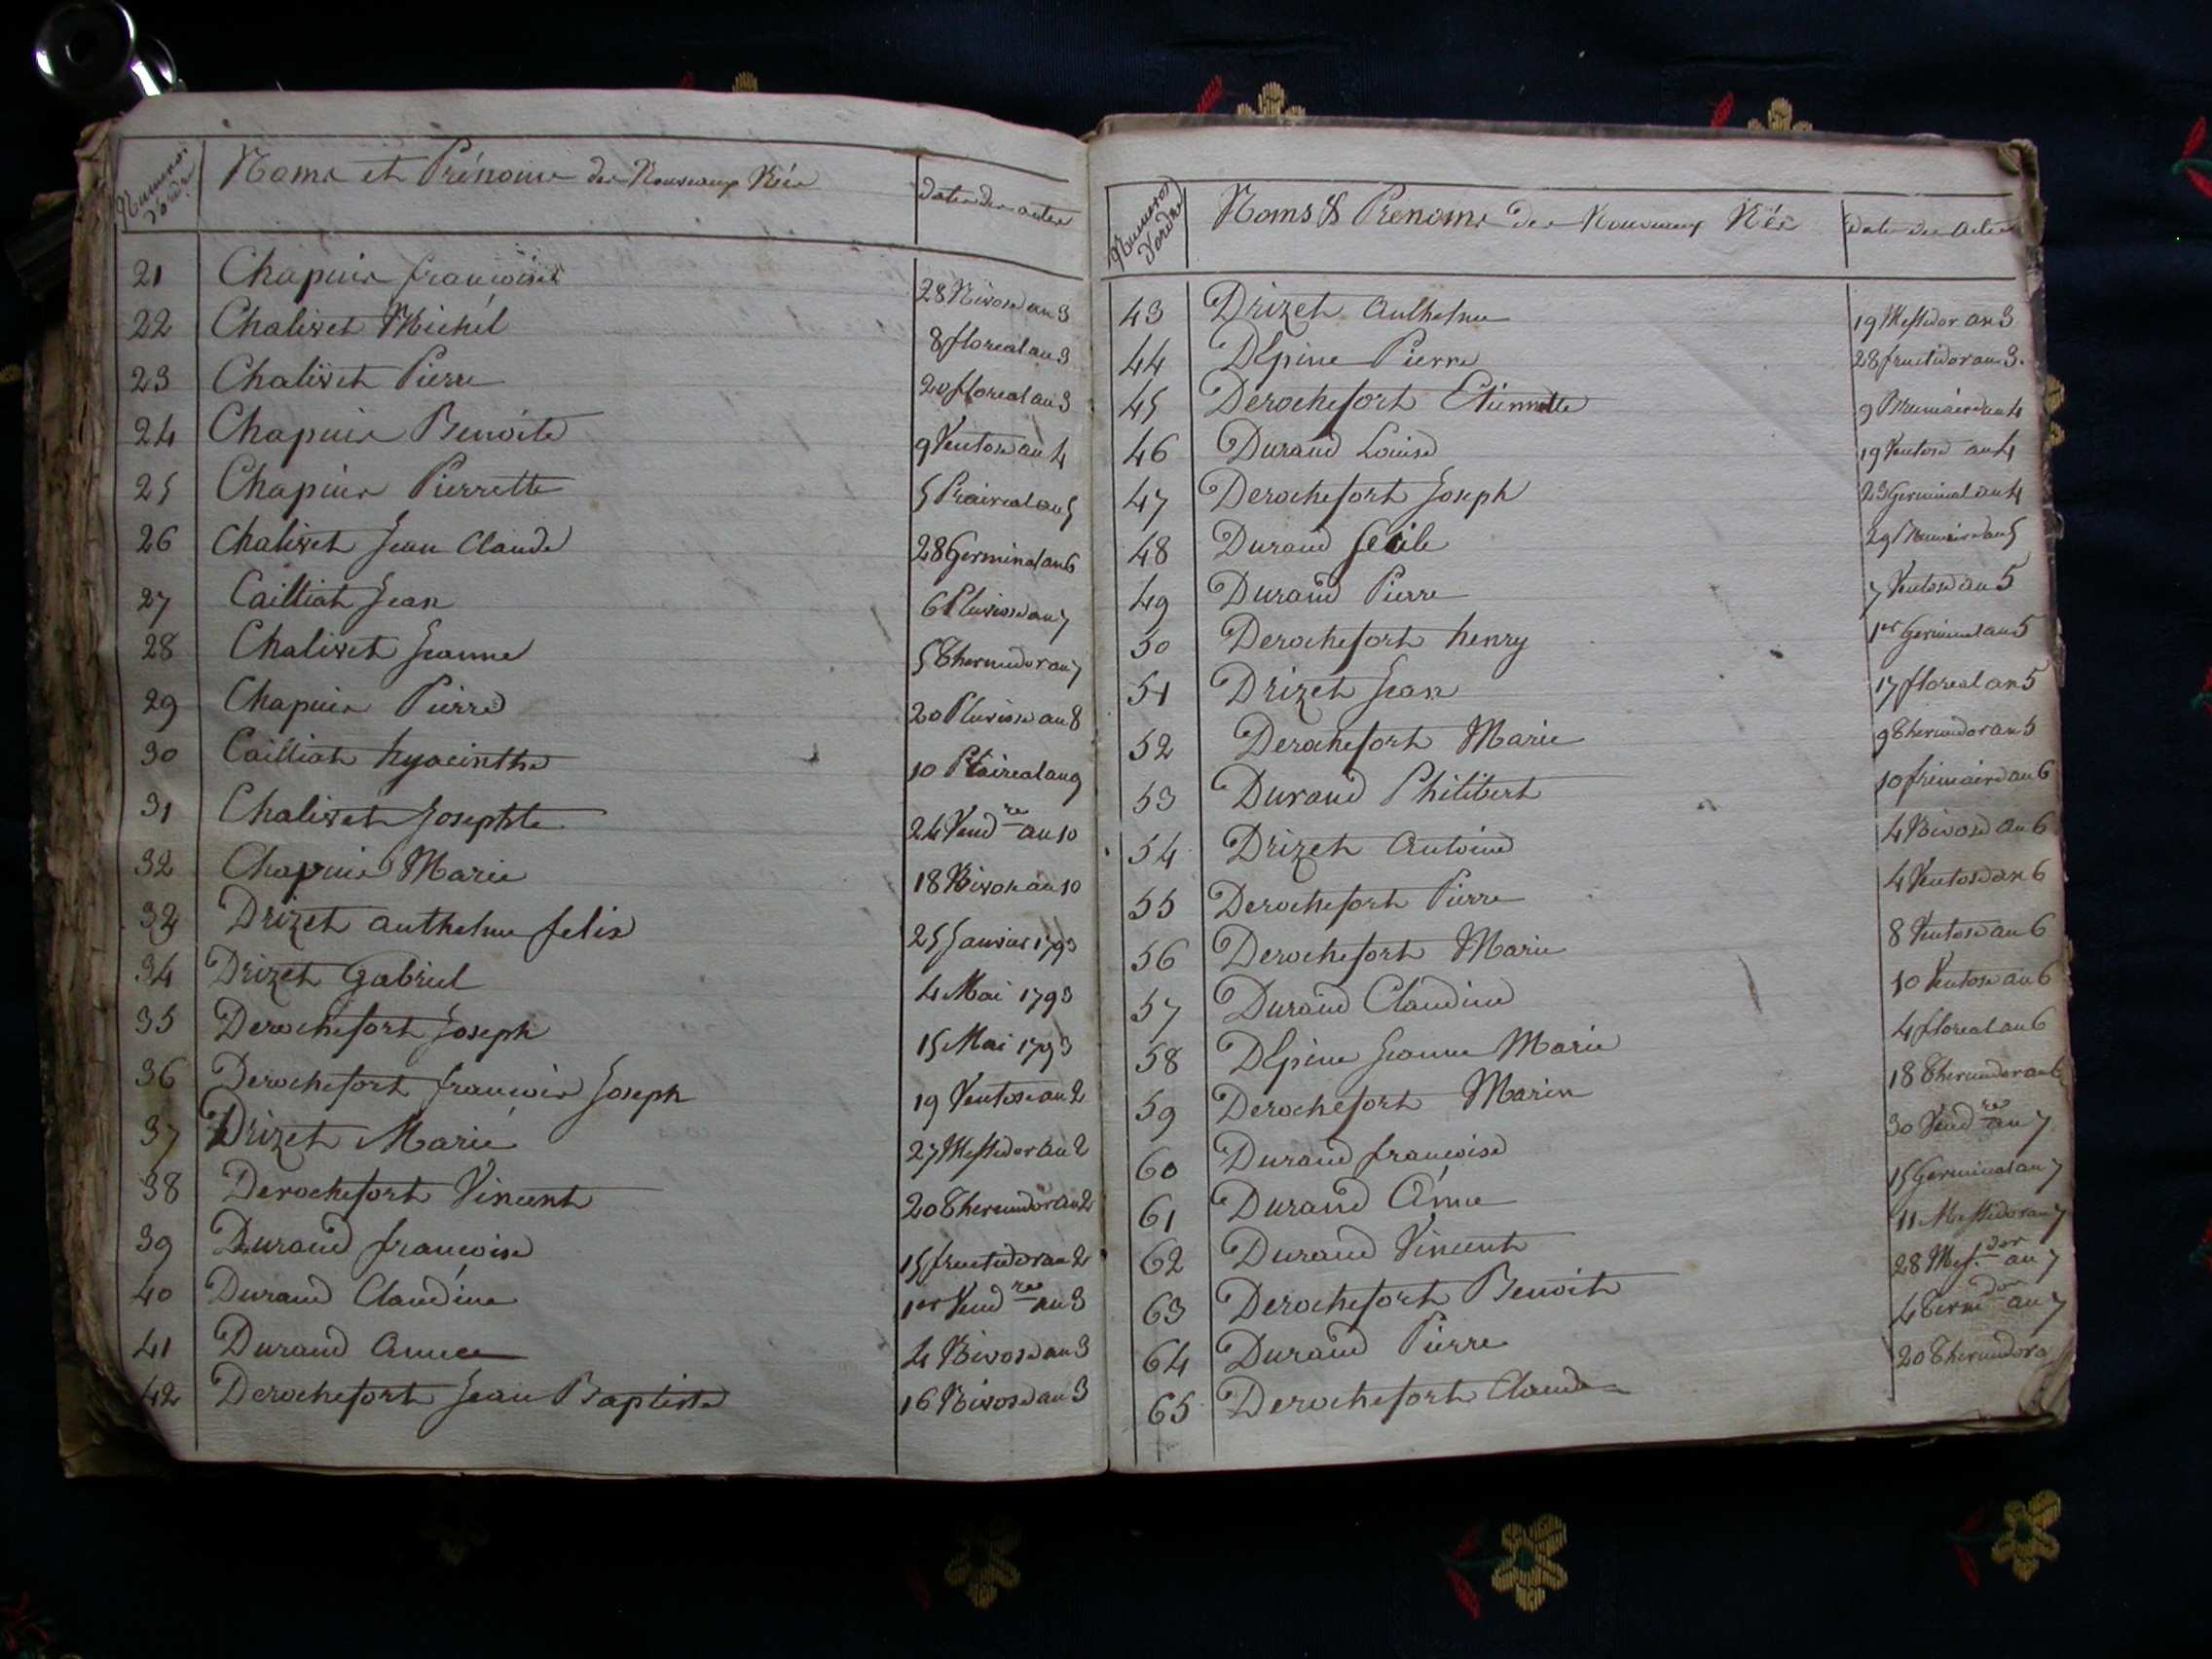 Numeros d'ordre Noms et Prénoms des Nouveaux Nés Date des actes
21 Chapuis francoise 28 Nivose an 3
22 Chalivet Michél 8 floreal an 3
23 Chalivet Pierre 20 floreal an 3
24 Chapuis Benoite 9 Ventose an 4
25 Chapuis Pierrette 5 Praireal an 5
26 Chalivet Jean Claude 28 Germinal an 6
27 Cailliat Jean 6 Pluviose an 7
28 Chalivet Jeanne 5 Thermidor an 7
29 Chapuis Pierre 20 Pluviose an 8
30 Cailliat hyacinthe 10 Praireal an 9
31 Chalivet Josephte 24 Vend.re an 10
32 Chapuis Marie 18 Nivose an 10
33 Drizet anthelme felix 25 Janvier 1793
34 Drizet Gabriel 4 Mai 1793
35 Derochefort Joseph 15 Mai 1793
36 Derochefort francois Joseph 19 Ventose an 2
37 Drizet Marie 27 Messidor an 2
38 Derochefort Vincent 20 Thermidor an 2
39 Durand francoise 15 fructidor an 2
40 Durand Claudine 1er Vend.re an 3
41 Durand Anne 4 Nivose an 3
42 Derochefort Jean Baptiste 16 Nivose an 3
Numeros d'ordre Noms & Prenoms des Nouveaux Nés Date des actes
43 Drizet Anthelme 19 Messidor an 3
44 Dlpine Pierre 28 fructidor an 3.
45 Derochefort Etiennette 9 Brumaire an 4
46 Durand Louise 19 Ventose an 4
47 Derochefort Joseph 23 Germinal an 4
48 Durand Cecile 29 Brumaire an 5
49 Durand Pierre 7 Ventose an 5
50 Derochefort henry 1er Germinal an 5
51 Drizet Jean 17 floreal an 5
52 Derochefort Marie 9 Thermidor an 5
53 Durand Philibert 10 frimaire an 6
54 Drizet Antoine 4 Nivose an 6
55 Derochefort Pierre 4 Ventose an 6
56 Derochefort Marie 8 Ventose an 6
57 Durand Claudine 10 Ventose an 6
58 Dlpine Jeanne Marie 4 floreal an 6
59 Derochefort Marin 18 Thermidor an 6
60 Durand francoise 30 Vend.re an 7
61 Durand Anne 15 Germinal an 7
62 Durand Vincent 11 Messidor an 7
63 Derochefort Benoit 28 Mes.dor an 7
64 Durand Pierre 4 Term.dor an 7
65 Derochefort Claude 20 Thermidor a